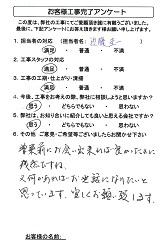 お客様工事完了アンケート
この度は、弊社の工事にてご愛顧頂き誠に有難うございました。
最後に、下記アンケートにお答え頂きます様お願い申し上げます。
1. 担当者の対応 (担当者名: )
満足 ・ 普通 ・ 不満
2. 工事スタッフの対応
満足 ・ 普通 ・ 不満
3. 工事の工期・仕上がり・清掃
満足 ・ 普通 ・ 不満
4. 今後、工事をお考えの際、弊社に相談しようと思いますか?
思う ・ どちらでもない ・ 思わない
5. 弊社は、お知り合いに紹介しても良いと思える会社ですか?
思う ・ どちらでもない ・ 思わない
6. その他 ご意見・ご希望等ございましたらお聞かせ下さい
営業前にお会い出来れば良かったのに
残念ですね、
又何かあればお世話になりたいと
思っています。宜しくお願い致します。
お客様のお名前: